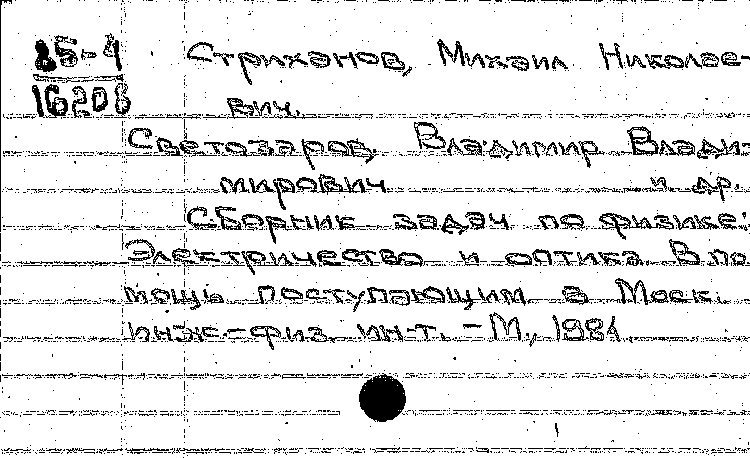 85-4 Стриханов, Михаил Николае-
16208 вич.
Светозаров, Владимир Влади-
мирович и др.
Сборник задач по физике:
Электричество и оптика. В по
мощь поступающим в Моск.
инж.-физ. ин-т. - М., 1984.